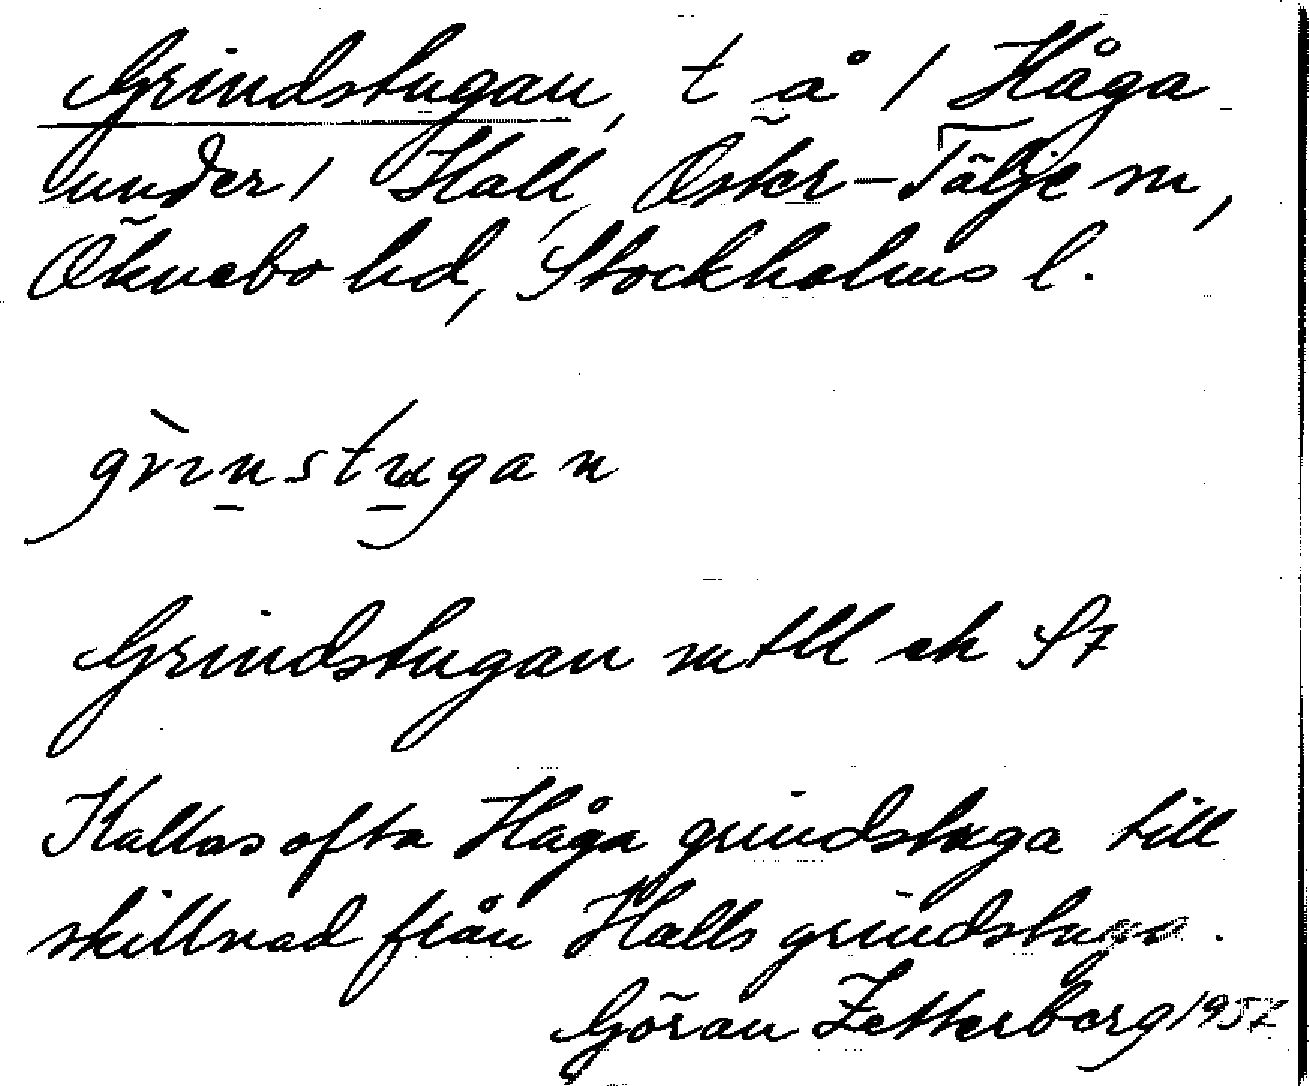 Grindstugan, t å / Håga
under / Hall, Öster-Tälje sn,
Öknebo hd, Stockholms l.
grìnstugan
Grindstugan mtll ek
Kallas ofta Håga grindstuga till
skillnad från Halls grindstuga.
Göran Zetterberg 1957